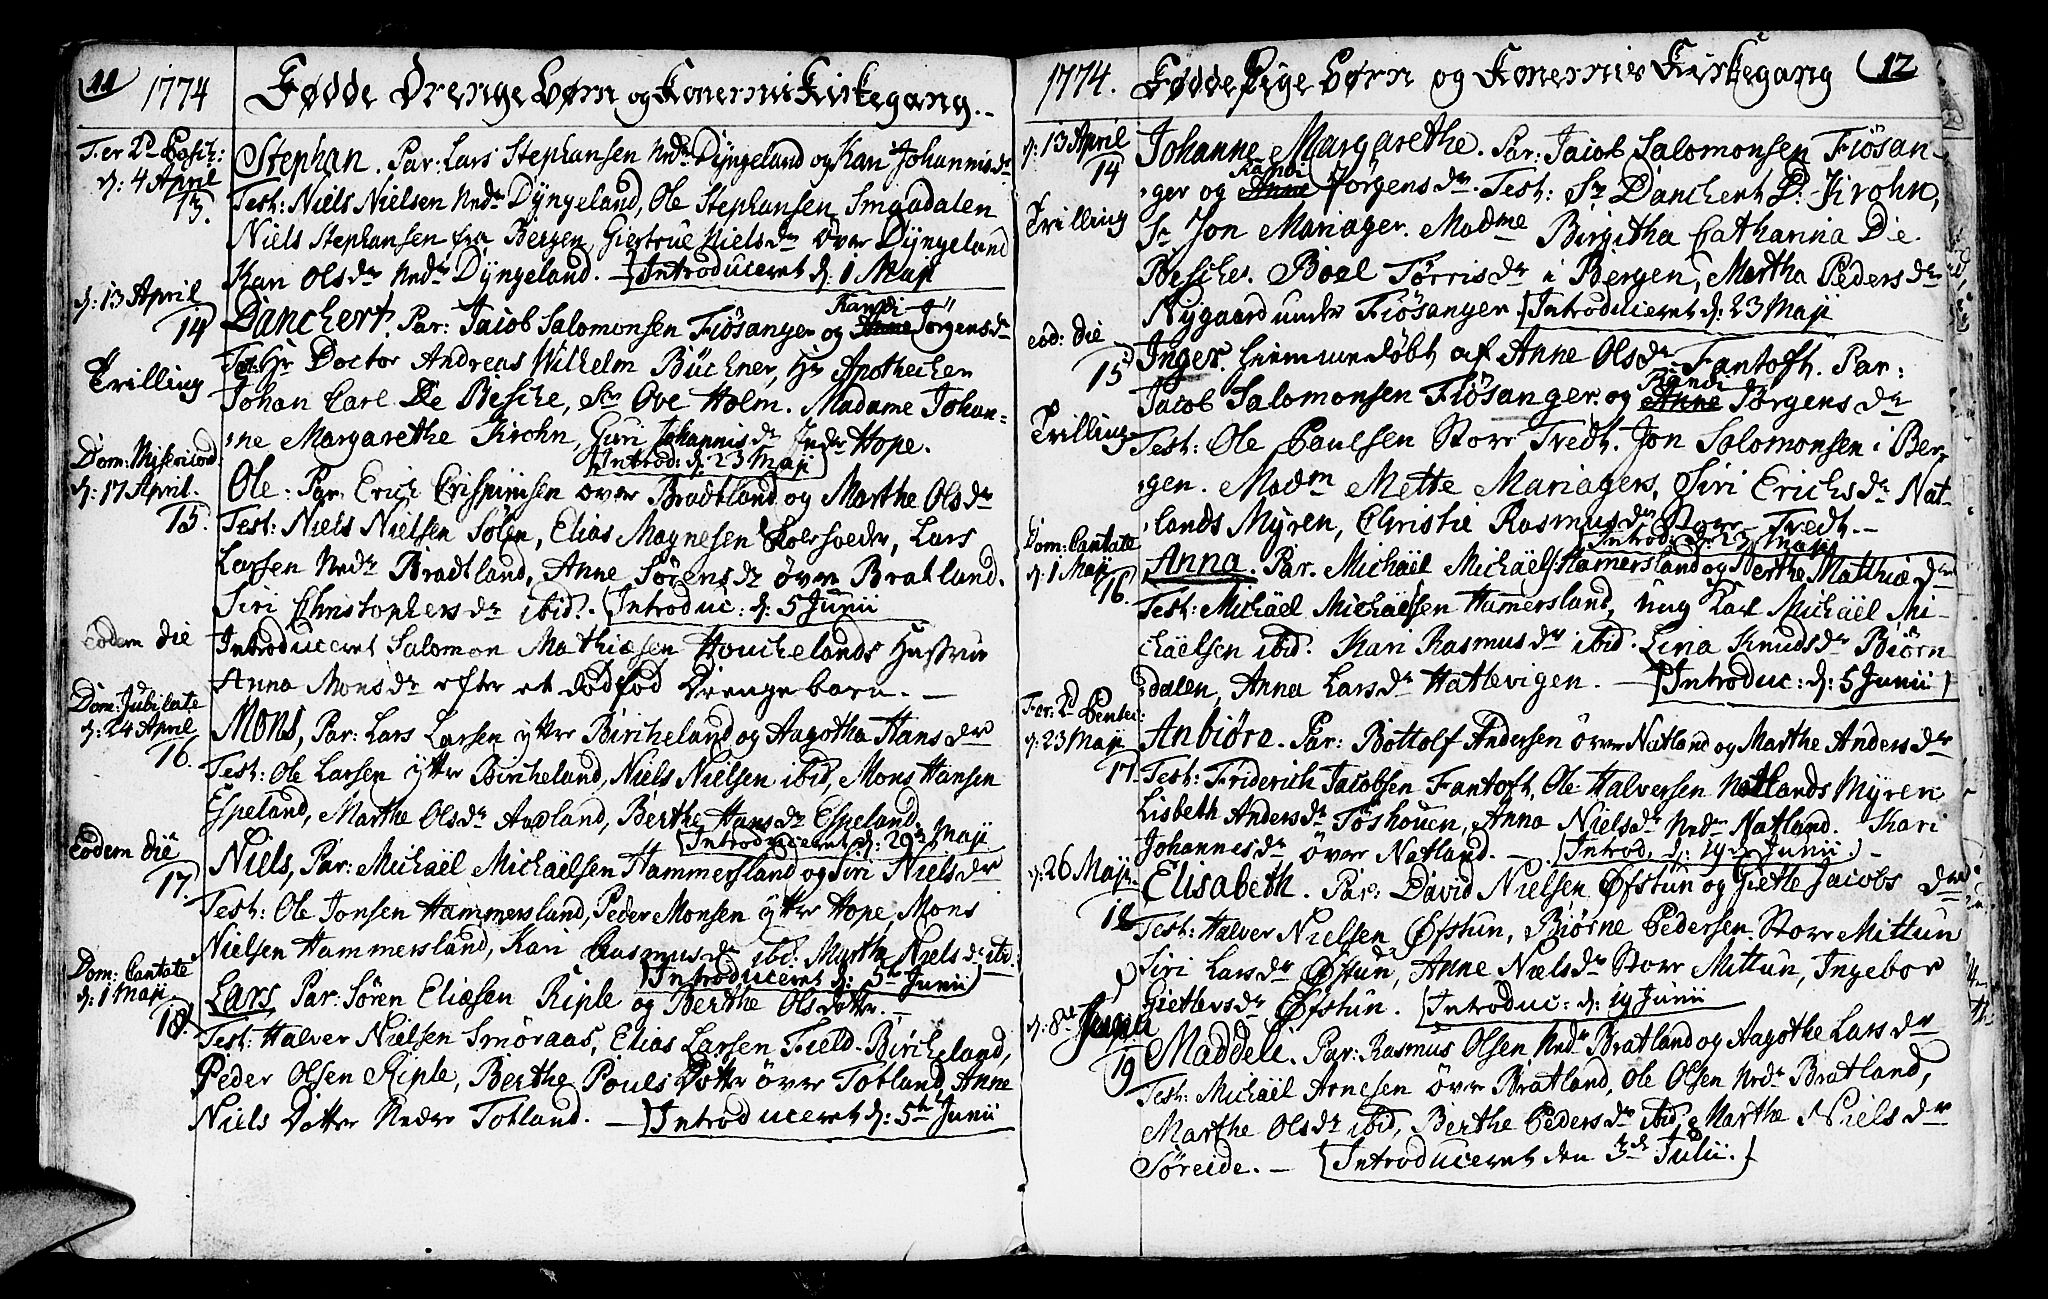 11
1774
Fødde Drenge Børn og Konernis Kirkegang.
Fer 2d Pasch:
d: 4 April
13.
Stephan. Par: Lars Stephansen Nedr Dyngeland og Kari Johannis dr
Test: Niels Nielsen Nedr Dyngeland, Ole Stephansen Smaadalen
Niels Stephansen fra Bergen, Giertrue Niels dr over Dyngeland
Kari Ols dr Nedr Dyngeland. Introduceret d: 1 Maji
d: 13 April
14
Trilling
Randi
Danchert. Par: Jacob Salomonsen Fiösanger og Anne Jörgens dr
Test: Hr Doctor Andreas Wilhelm Büchner, Hr Apothecher
Johan Carl De Besche, Sr Ove Holm. Madame Johan-
ne Margarethe Krohn, Guri Johannis dr Indr Hope.
Introd: d: 23 Maji
Dom: Misericord
d: 17 April.
15.
Ole: Par: Erich Crispinsen over Bradtland og Marthe Ols dr
Test: Niels Nielsen Sölen, Elias Magnesen, Lars
Larsen Nedr Bradtland, Anne Sörens dr över Bratland.
Siri Christophers dr ibid. Introduc: d: 5 Junii
eodem die
Introduceret Salomon Mathiæsen Houchelands Hustrue
Anna Mons dr efter et dödfød Drengebarn. —
Dom: Jubilate
d: 24 April
16.
Mons, Par: Lars Larsen ytter Bircheland og Aagotha Hans dr
Test: Ole Larsen ytter Bircheland, Niels Nielsen ibid, Mons Hansen
Espeland, Marthe Ols dr Aadland, Berthe Hans dr Espeland.
Introduceret d: 29 Maji
Eodem die
17.
Niels, Par: Michaël Michaëlsen Hammersland og Siri Niels dr
Test: Ole Jonsen Hammersland, Peder Monsen ytter Hope, Mons
Nielsen Hammersland, Kari Rasmus dr ibid. Martha Niels dr ibd.
Introduceret d: 5te Junii
Dom: Cantate
d: 1 Maji
18.
Lars, Par: Sören Eliæsen Riple og Berthe Ols Dotter. —
Test: Halver Nielsen Smöraas, Elias Larsen Field-Bircheland,
Peder Olsen Riple, Berthe Pouls Dotter över Totland, Anne
Niels Dotter Neder Totland. — Introduceret d: 5te Junii
1774.
Fødde Pige Børn og Konernis Kirkegang
12
d: 13 April
14
Trilling
Johanne Margarethe. Par: Jacob Salomonsen Fiösan-
Randi
ger og Anne Jörgens dr. Test: Sr Danchert D: Krohn,
Sr Jon Mariager. Madme Birgitha Catharina De
Besches. Boel Törris dr i Bergen, Martha Peders dr
Nygaard under Fiösanger. Introduceret d: 23 Maji
eod: die
15
Trilling
Inger. hiemmedöbt af Anne Ols dr Fantoft. Par:
Randi
Jacob Salomonsen Fiösanger og Anne Jörgens dr
Test: Ole Paulsen Store Tvedt. Jon Salomonsen i Ber-
gen. Madm Mette Mariagers, Siri Erichs dr Nat-
lands Myren, Christie Rasmus dr Store Tvedt. —
Introd: d: 23 Maji
Dom: Cantate
d: 1 Maji
16.
Anna. Par. Michäel Michäels Hamersland og Berthe Mathiæ dr
Test: Michäel Michäelsen Hamersland, Ung Karl Michäel Mi-
chäelsen ibid. Kari Rasmus dr ibid. Lina Knuds dr Biörn
dalen, Anna Lars dr Hatlevigen. — Introduc: d: 5 Junii
Fer: 2d Pentec:
d: 23 Maji
17.
Anbiöre. Par: Bottolf Andersen över Natland og Marthe Anders dr
Test: Friderich Jacobsen Fantoft, Ole Halversen Natlands Myren
Lisbeth Anders dr Töshouen, Anna Niels dr Nedr Natland. Kari
Johannes dr över Natland. — Introd. d: 19 Junii
d: 26 Maji
18
Elisabeth. Par: David Nielsen Øfstun og Giethe Jacobs dr
Test: Halver Nielsen Øfstun, Biörne Pedersen Store Mittun
Siri Lars dr Øfstun, Anne Niels dr Store Mittun, Ingebor
Gietlers dr Øfstun. Introduc: d: 19 Junii
d: 8de
19
Maddeli. Par: Rasmus Olsen Nedr Bratland og Aagothe Lars dr
Test: Michäel Arnesen över Bratland, Ole Olsen Nedr Bratland,
Marthe Ols dr ibid, Berthe Peders dr ibid, Marthe Niels dr
Söreide. — Introduceret den 3de Julii.